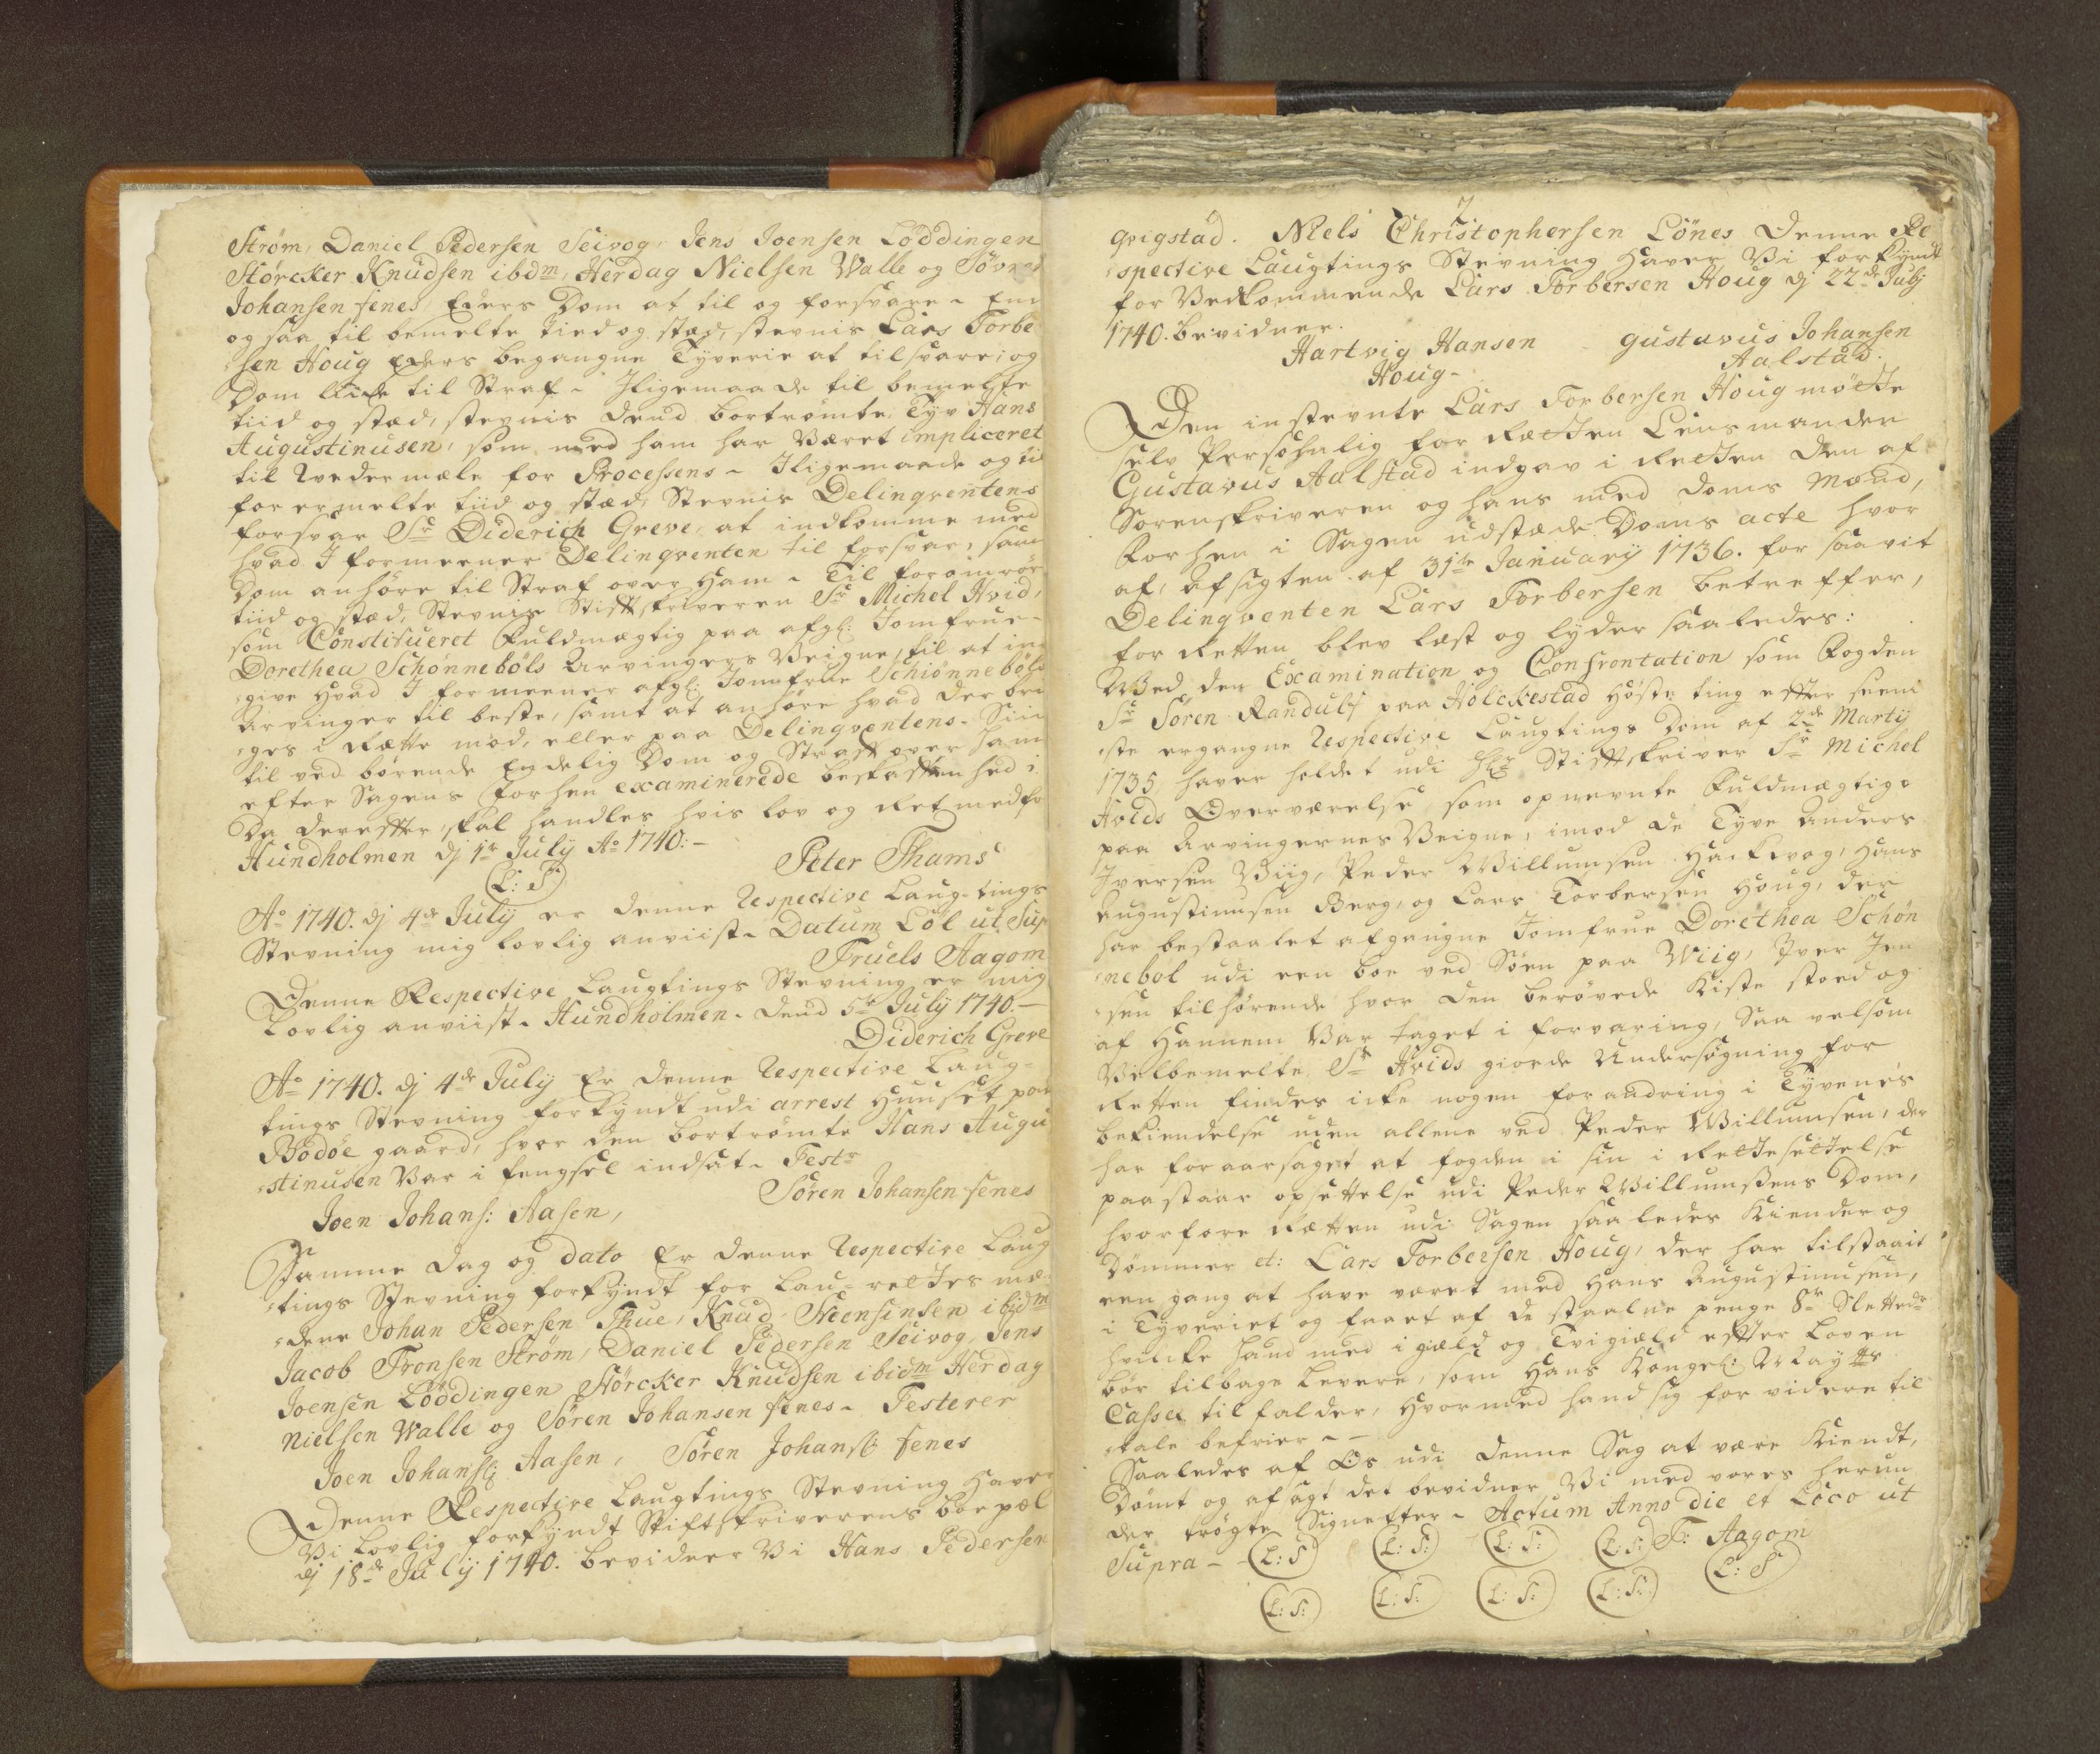 Strøm, Daniel Pedersen Seivog, Jens Joensen Löddingen
Störcker Knudsen ibdm, Herdag Nielsen Walle og Sövren
Johansen fenes, Eders Dom at til og forsvare ~ End
og saa til bemelte tiid og stæd, stevnis Lars Torbe
sen Houg Eders begangne Tyverie at tilsvare; og
Dom liide til Straf ~ Iligemaade til bemelte
tiid og stæd, stevnis dend bortrømte Tyv Hans
Augustinusen, som med ham har Været impliceret
til Wedermæle for Processens ~ Iligemaade og til
forermelte tiid og stæd, Stevnis Delinqventens
forsvar Sr Diderich Greve, at indkomme med
hvad I formeener Delinqventen til forsvar, samt
Dom anhøre til Straf over Ham ~ Til foromrör
tiid og stæd, Stevnis Stiftskriveren Sr Michel Hvid,
som Constitueret Fuldmægtig paa afgl: Jomfrue
Dorethea Schönneböls Arvingers Veigne, til at in
give Hvad I formeener afgl: Jomfrue Schiönneböls
Arvinger til beste, samt at anhøre hvad der bri
ges i Rette mod, eller paa Delinqventens Siin
til ved børende Endelig Dom og Straff over ham
efter Sagens forhen examinerede beskaffenhed;
Da derefter skal handles hvis lov og Ret medfø
Hundholmen dj 1te July Ao 1740: ~
(L: S:) Peter Thams
Ao 1740. dj 4de July er denne Respective Laug-tings
Stevning mig lovlig anviist ~ Datum Löl ut Sup
Truels Aagom
Denne Respective Laugtings Stevning er mig
Lovlig anviist ~ Hundholmen ~ dend 5te July 1740. ~
Diderich Greve
Ao 1740. dj 4de July Er denne Respective Laug-
tings Stevning forkyndt udi arrest Huuset paa
Bodöe gaard, hvor den bortrømte Hans Augu
stinusen Var i fengsel indsat ~ Testr
Joen Johans: Aasen, Sören Johansen fenes
Samme Dag og dato Er denne Respective Laug
tings Stevning forkyndt for Lau-rettes mæ
dene Johan Pedersen Thue, Knud Steensinsen ibidm
Jacob Tronsen Ström, Daniel Pedersen Seivog, Jens
Joensen Löddingen Störcker Knudsen ibidm Herdag
Nielsen Walle og Sören Johansen fenes ~ Testerer
Joen Johans: Aasen, Sören Johans: fenes
Denne Respective Laugtings Stevning Haver
Vi Lovlig forkyndt Stiftskriverens boepæl
dj 18de July 1740. bevidner Vi Hans Pedersen
7
qvigstad. Niels Christophersen Lönes denne Re
spective Laugtings Stevning haver Vi forkyndt
for Vedkommende Lars Torbersen Houg dj 22de July
1740. bevidner.
Hartvig Hansen Gustavus Johansen
Houg ~ Aalstad.
Den instevnte Lars Torbersen Houg mötte
selv Persohnlig for Retten Lensmanden
Gustavus Aalstad indgav i Retten den af
Sorenskriveren og hans med doms Mænd,
forhen i Sagen udstæde Doms acte hvor
af, Afsigten af 31te January 1736. for saavit
Delinqventen Lars Torbersen betreffer,
for Retten blev læst og lyder saaledes:
Wed den Examination og Confrontation som Fogden
Sr Sören Randulf paa Holckestad Höste ting efter seeni
ste ergangne Respective Laugtings Dom af 2de Marty
1735, haver holdet udi Hr Stiftskriver Sr Michel
Hvids Overværelse, som opnevnte Fuldmægtige
paa Arvingernes Veigne, imod de Tyve Anders
Iversen Wiig, Peder Willumsen Hackevog, Hans
Augustinusen Berg, og Lars Torbersen Houg, der
har bestaalet afgangne Jomfrue Dorethea Schön
nebol udi een boe ved Söen paa Wiig, Iver Jen
sen tilhørende hvor den berövede Kiste stoed og
af Hannem Var taget i forvaring, Saa velsom
Velbemelte Sr Hvids giorde Undersøgning for
Retten findes icke nogen forandring i Tyvenes
bekiendelse uden allene ved Peder Willumsen, der
har foraarsaget at fogden i sin i Rettesettelse
paastaar opsettelse udi Peder Willumsens Dom,
hvorfore Retten udi Sagen saaledes Kiender og
Dömmer et: Lars Torbersen Houg, der har tilstaait
een gang at have været med Hans Augustinusen,
i Tyveriet og faaet af de staalne penge 8te Slettedr
hvilcke hand med igield og Tvigield efter Loven
bør tilbage levere, som Hans Kongel: Mayts
Cassa tilfalder, hvormed hand sig for videre til
tale befrier ~ ~
Saaledes af Os udi denne Sag at være Kiendt,
Dömt og afsagt det bevidner Vi med vores herun
der trögte Signetter ~ Actum Anno die et Loco ut
Supra ~ (L: S) (L: S:) (L: S:) (L: S:) T: Aagom
(L: S:) (L: S:) (L: S:) (L: S:) (L: S)